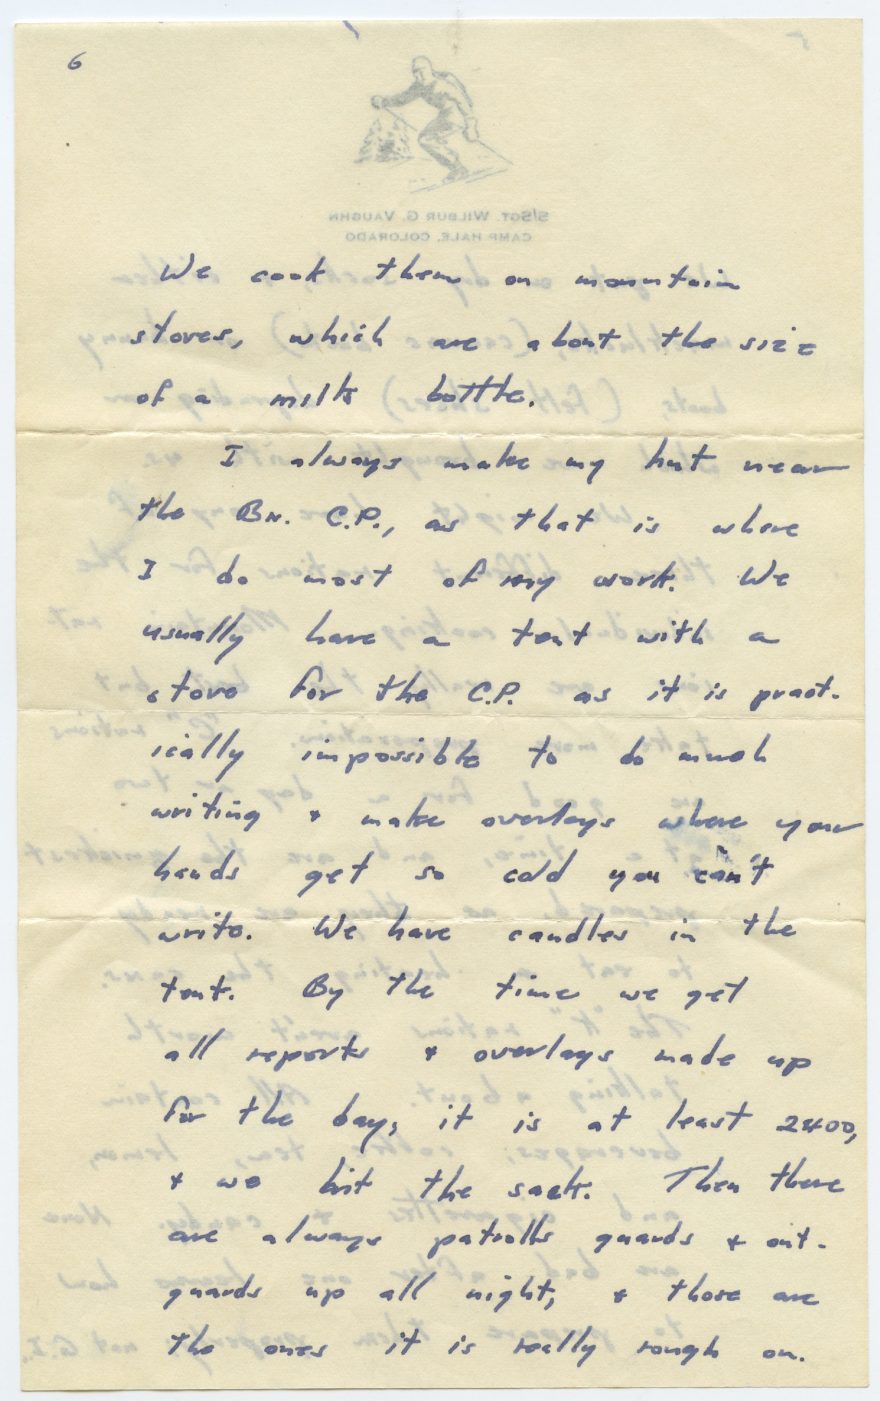 6
S/SGT. WILBUR G. VAUGHN
CAMP HALE, COLORADO
We cook them on mountain
stoves, which are about the size
of a milk bottle.
I always make my hut near
the Bn. C.P., as that is where
I do most of my work. We
usually have a tent with a
stove for the C.P. as it is pract-
ically impossible to do much
writing & make overlays where your
hands get so cold you can't
write. We have candles in the
tent. By the time we get
all reports & overlays made up
for the day, it is at least 2400,
& we hit the sack. Then there
are always patrolls guards & out-
guards up all night, & those are
the ones it is really rough on.